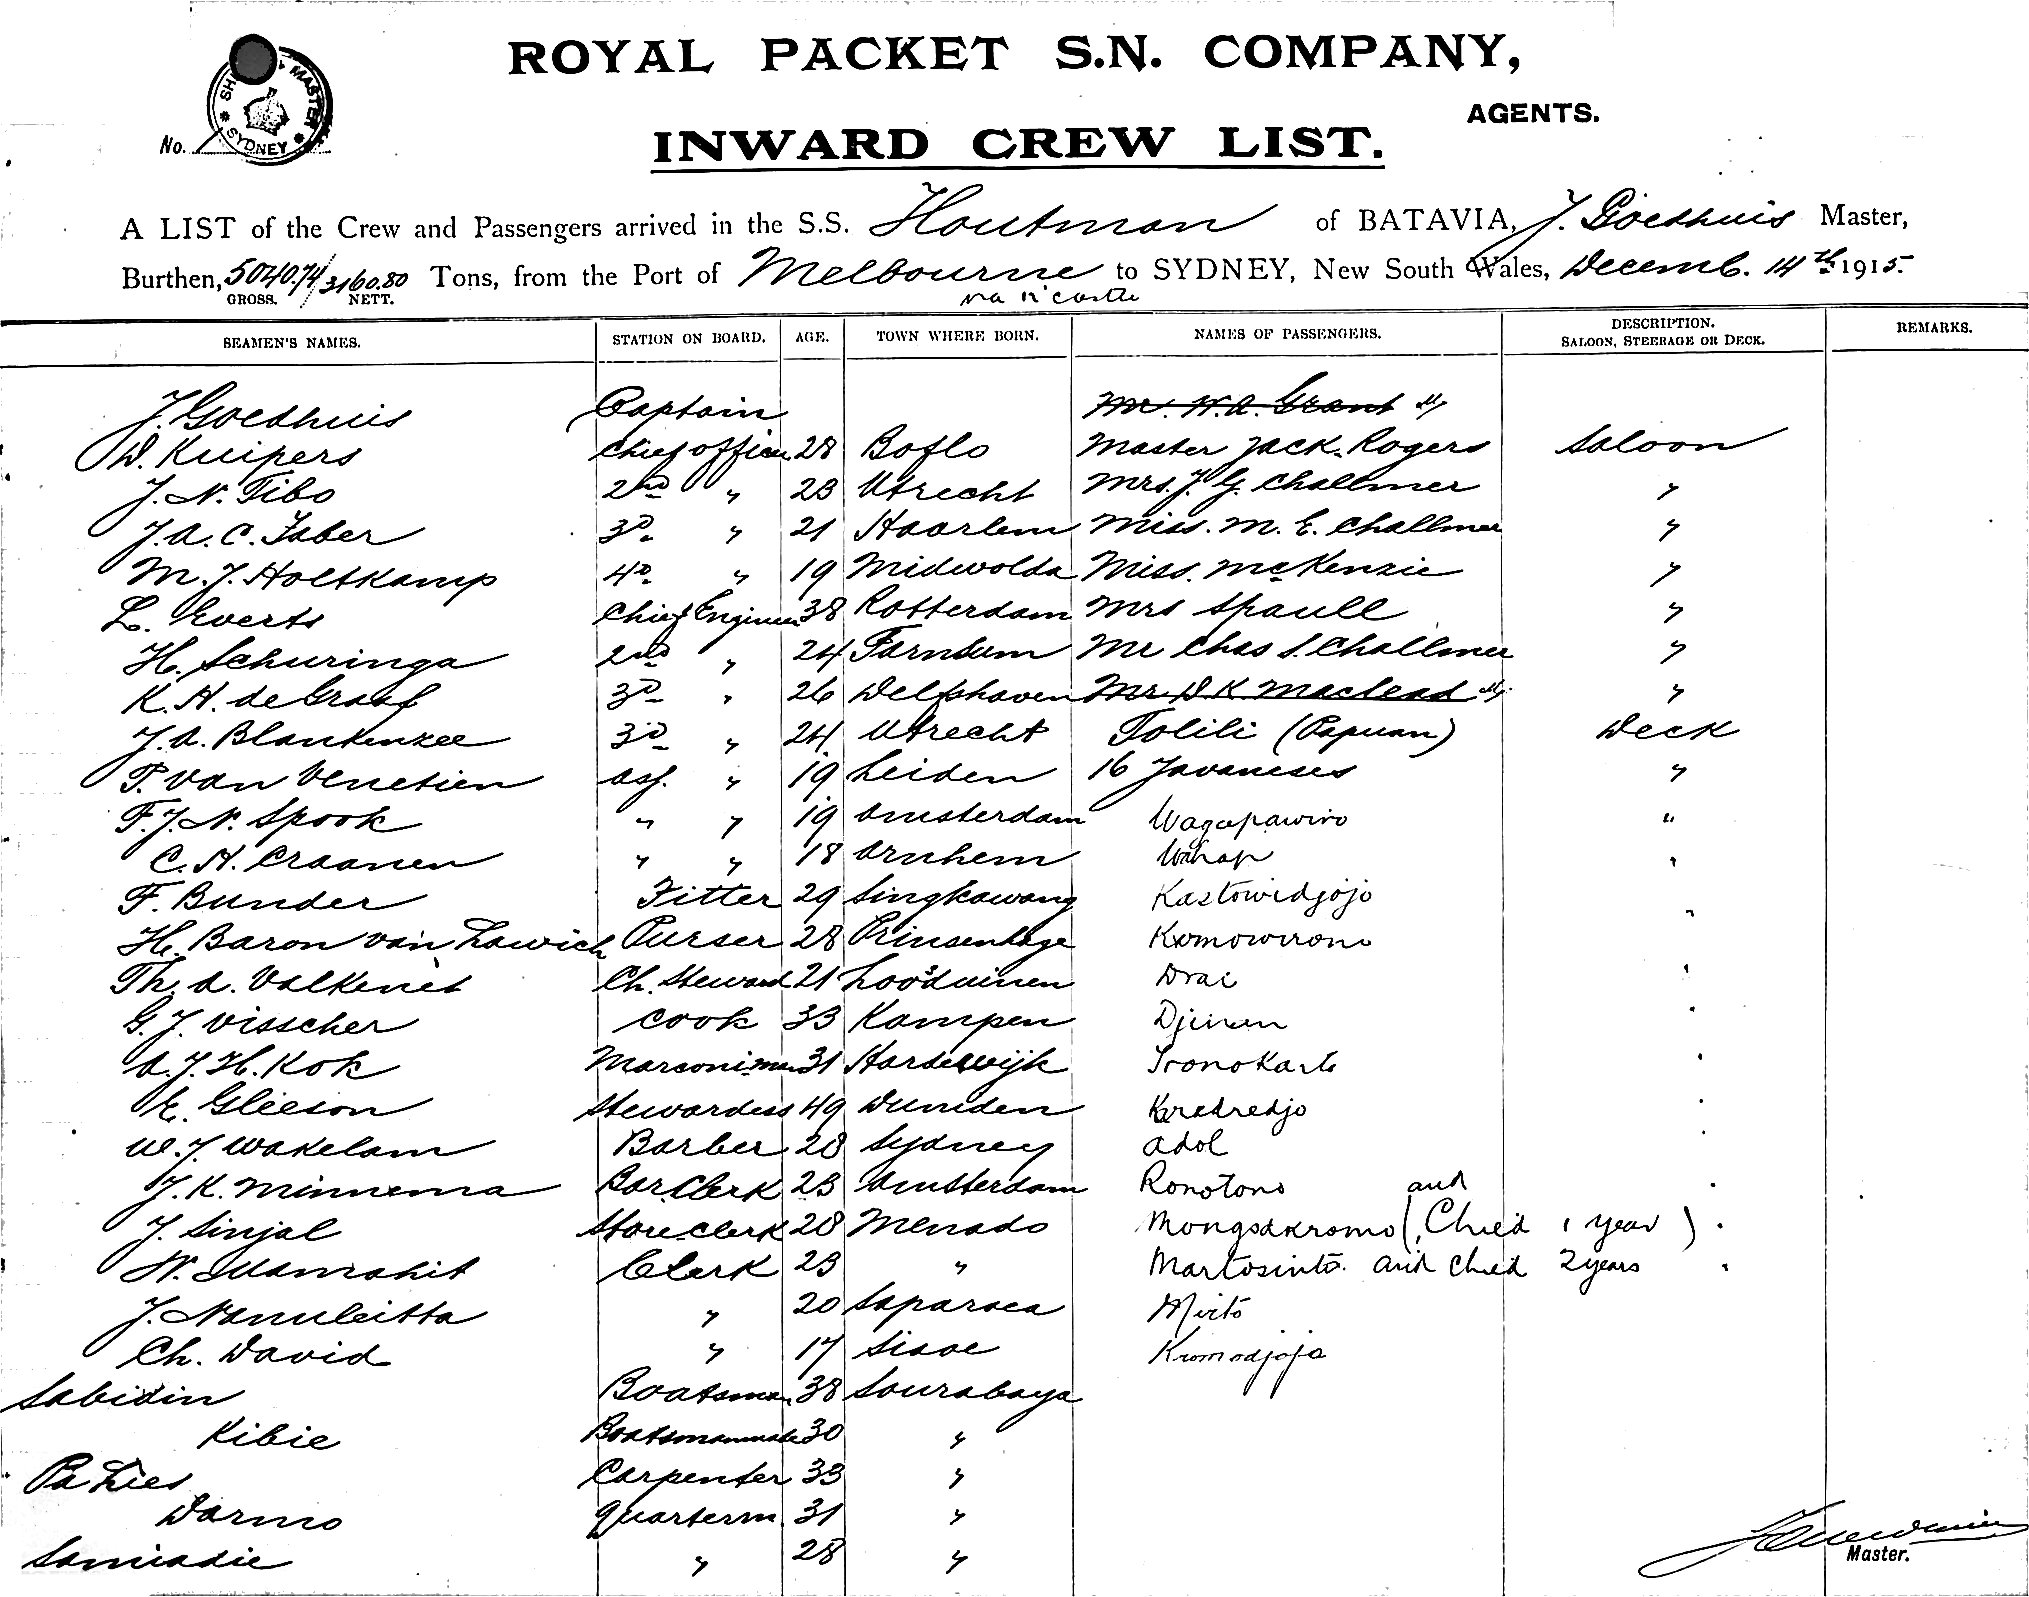 ROYAL PACKET S.N. COMPANY,
AGENTS.
SHIPPING MASTER SYDNEY
No. 1
INWARD CREW LIST.
A LIST of the Crew and Passengers arrived in the S.S. Houtman of BATAVIA, J. Goedhuis Master,
Burthen, 5040.74/3160.80 Tons, from the Port of Melbourne to SYDNEY, New South Wales, Decemb. 14th 1915.
GROSS. NETT. via N'castle
SEAMEN'S NAMES. STATION ON BOARD. AGE. TOWN WHERE BORN. NAMES OF PASSENGERS. DESCRIPTION. SALOON, STEERAGE OR DECK. REMARKS.
J. Goedhuis Captain Mr. W.A. Grant
D. Kuipers Chief officer 28 Boflo Master Jack Rogers Saloon
J. N. Tibo 2nd " 23 Utrecht Mrs. J. G. Challmer "
J. A. C. Faber 3d " 21 Haarlem Miss. M. E. Challmer "
M. J. Holtkamp 4d " 19 Midwolda Miss. McKenzie "
L. Everts Chief Engineer 38 Rotterdam Mrs Spaull "
H. Schuringa 2nd " 24 Farnsum Mr Chas S. Challmer "
K. H. de Graaf 3d " 26 Delfshaven Mr. D K Macleod "
J. A. Blankenzee 3d " 24 Utrecht Tolili (Papuan) Deck
P. van Venetien ass. " 19 Leiden 16 Javaneses "
F. J. N. Spook " " 19 Amsterdam Wagapawiro "
C. H. Craanen " " 18 Arnhem Wahap "
F. Bunder Fitter 29 Singkawang Kastowidjojo "
H. Baron van Lawick Purser 28 Prinsenhage Kromowirono
Th. A. Valkenet Ch. Steward 21 Loosduinen Drai "
G. J. Visscher Cook 33 Kampen Djinan "
A. J. H. Kok Marconi-man 31 Harderwijk Tronokarto "
E. Gleeson Stewardess 49 Kredredjo "
W. J. Wakelam Barber 28 Sydney Adol "
J. K. Minnema Bar Clerk 23 Amsterdam Ronotono and "
J. Sinjal Store Clerk 28 Menado Mongsokromo (Child 1 year) "
W. Mamahit Clerk 23 " Martosinto and Child 2 years "
J. Nanuleitta " 20 Saparoea Mirto
Ch. David " 17 Sisoe Kromodjojo
Sabidin Boatsman 38 Sourabaya
Kibie Boatsmanmate 30 "
Pa Lies Carpenter 33 "
Darmo Quarterm. 31 "
Samiadie " 28 "
Master.